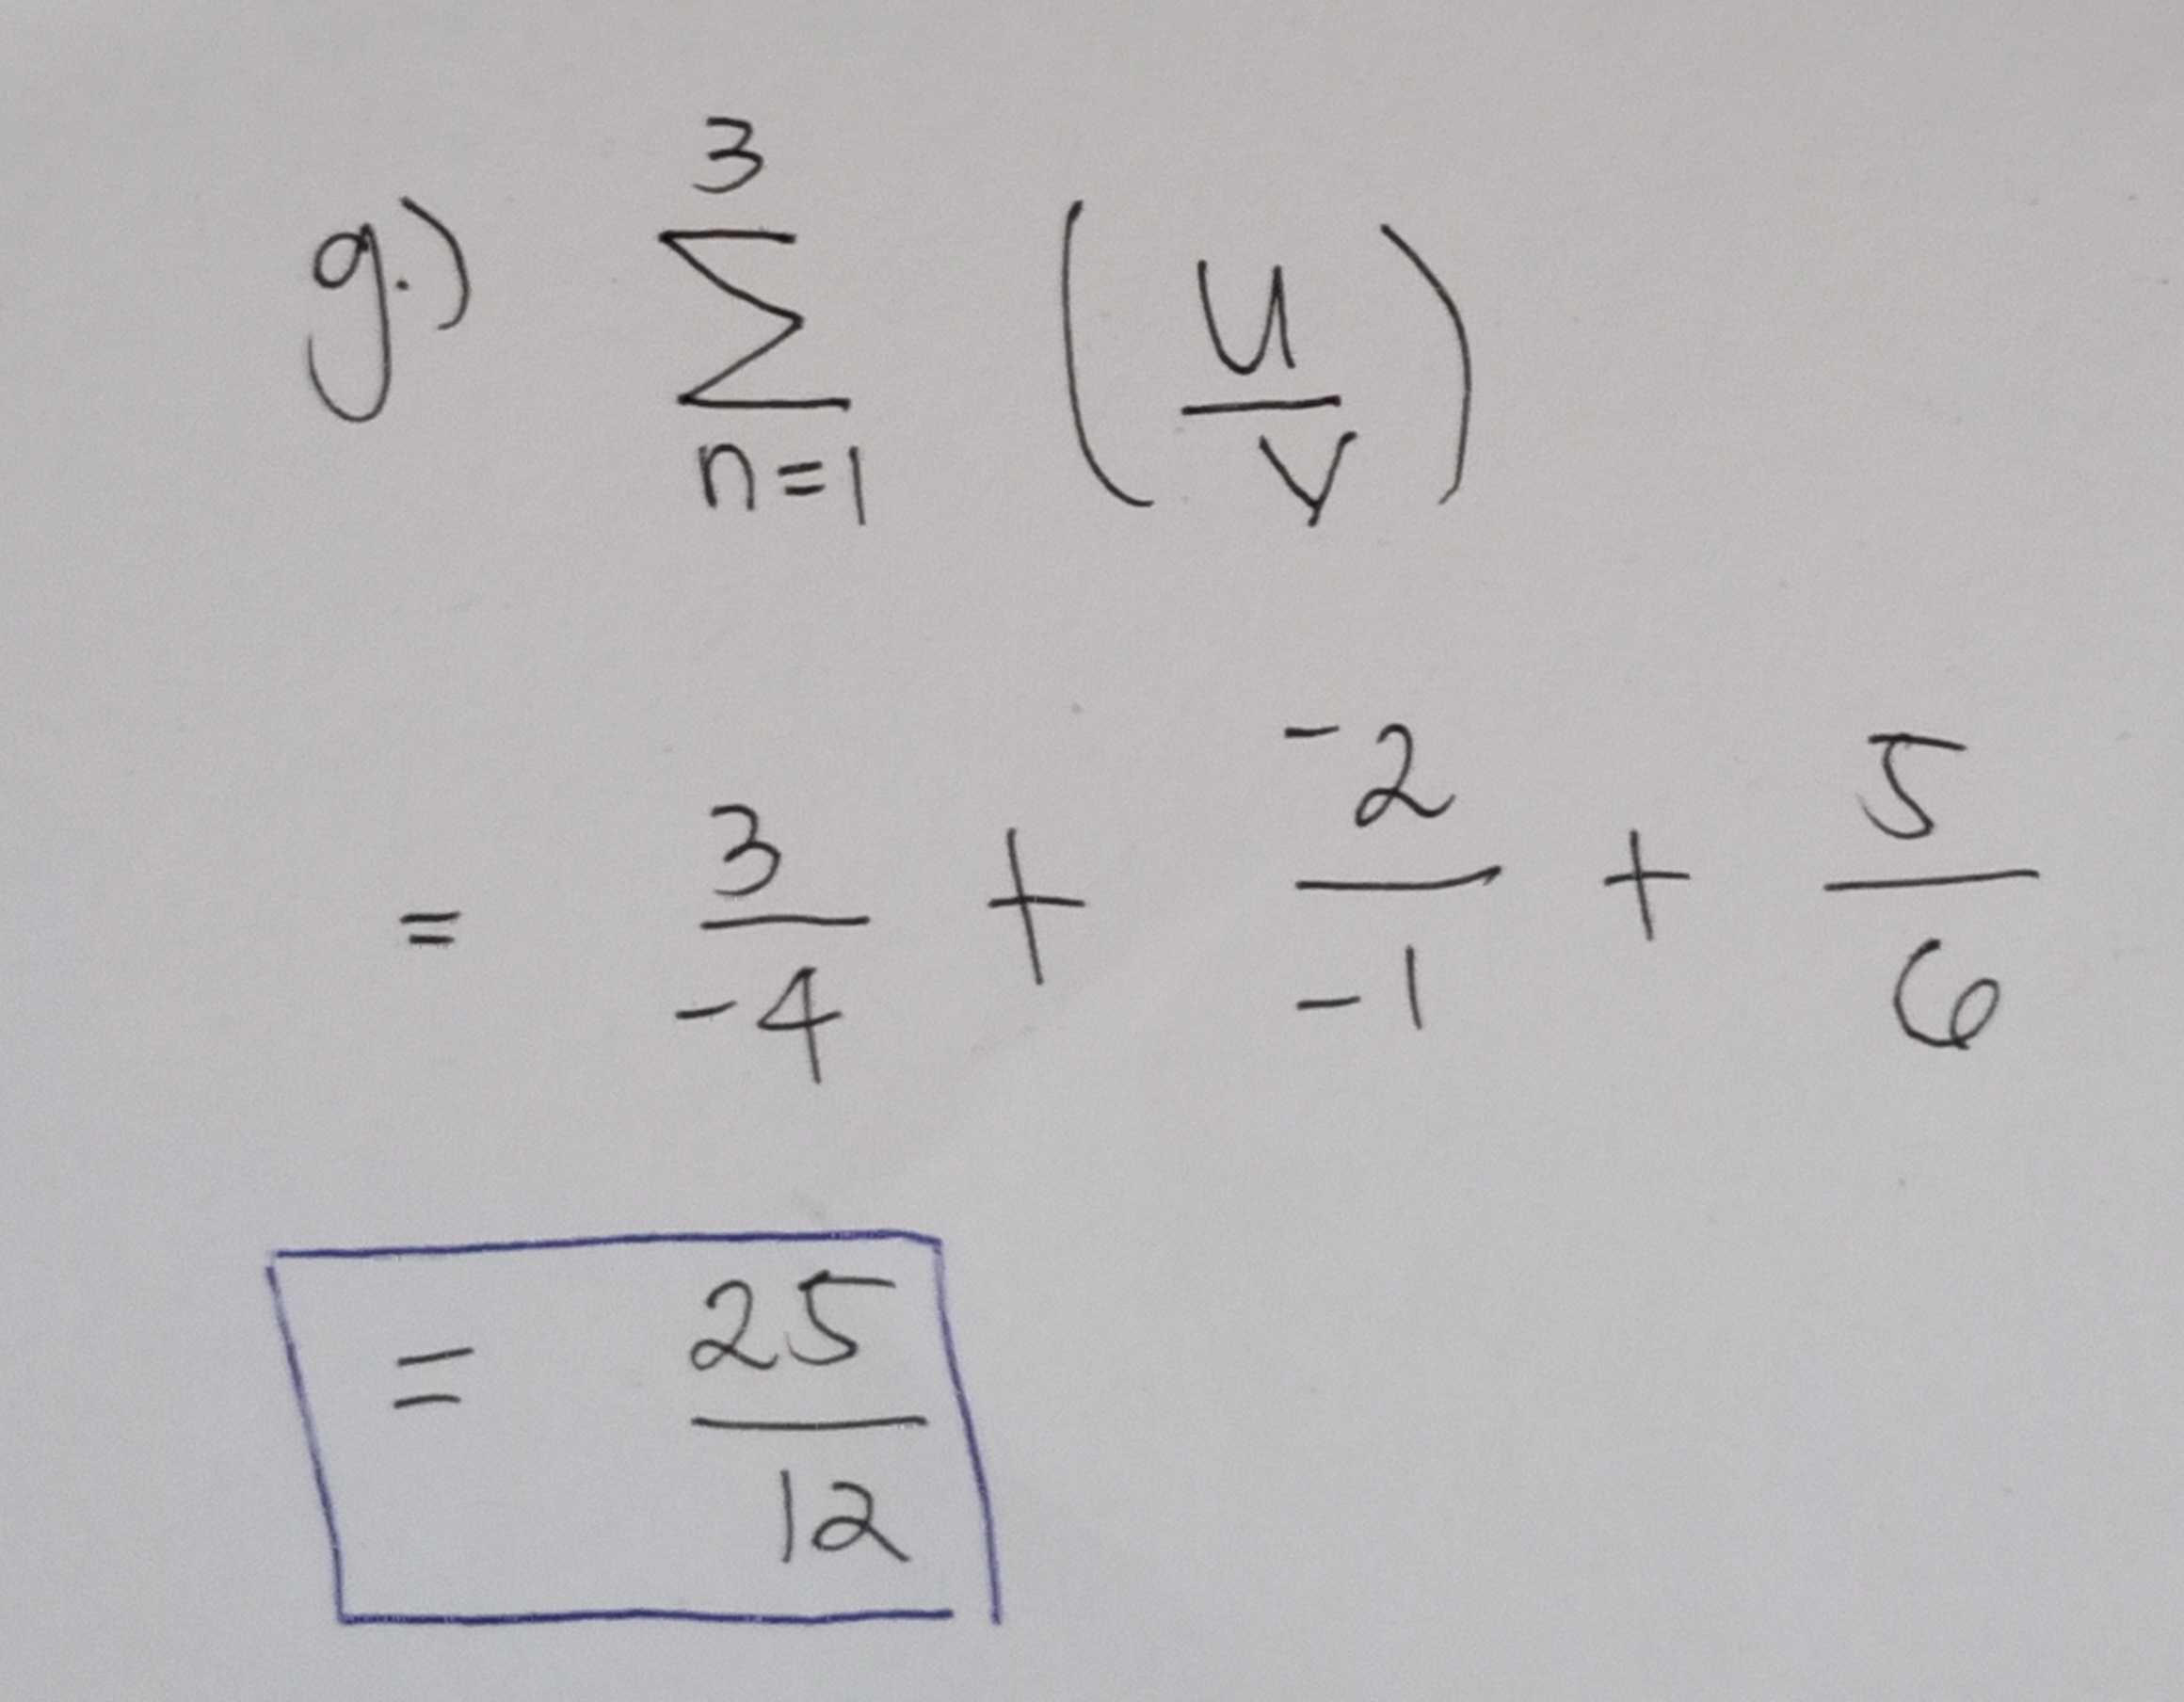 g.) $\sum_{n=1}^{3} \left( \frac{u}{v} \right)$
$= \frac{3}{-4} + \frac{-2}{-1} + \frac{5}{6}$
$= \frac{25}{12}$